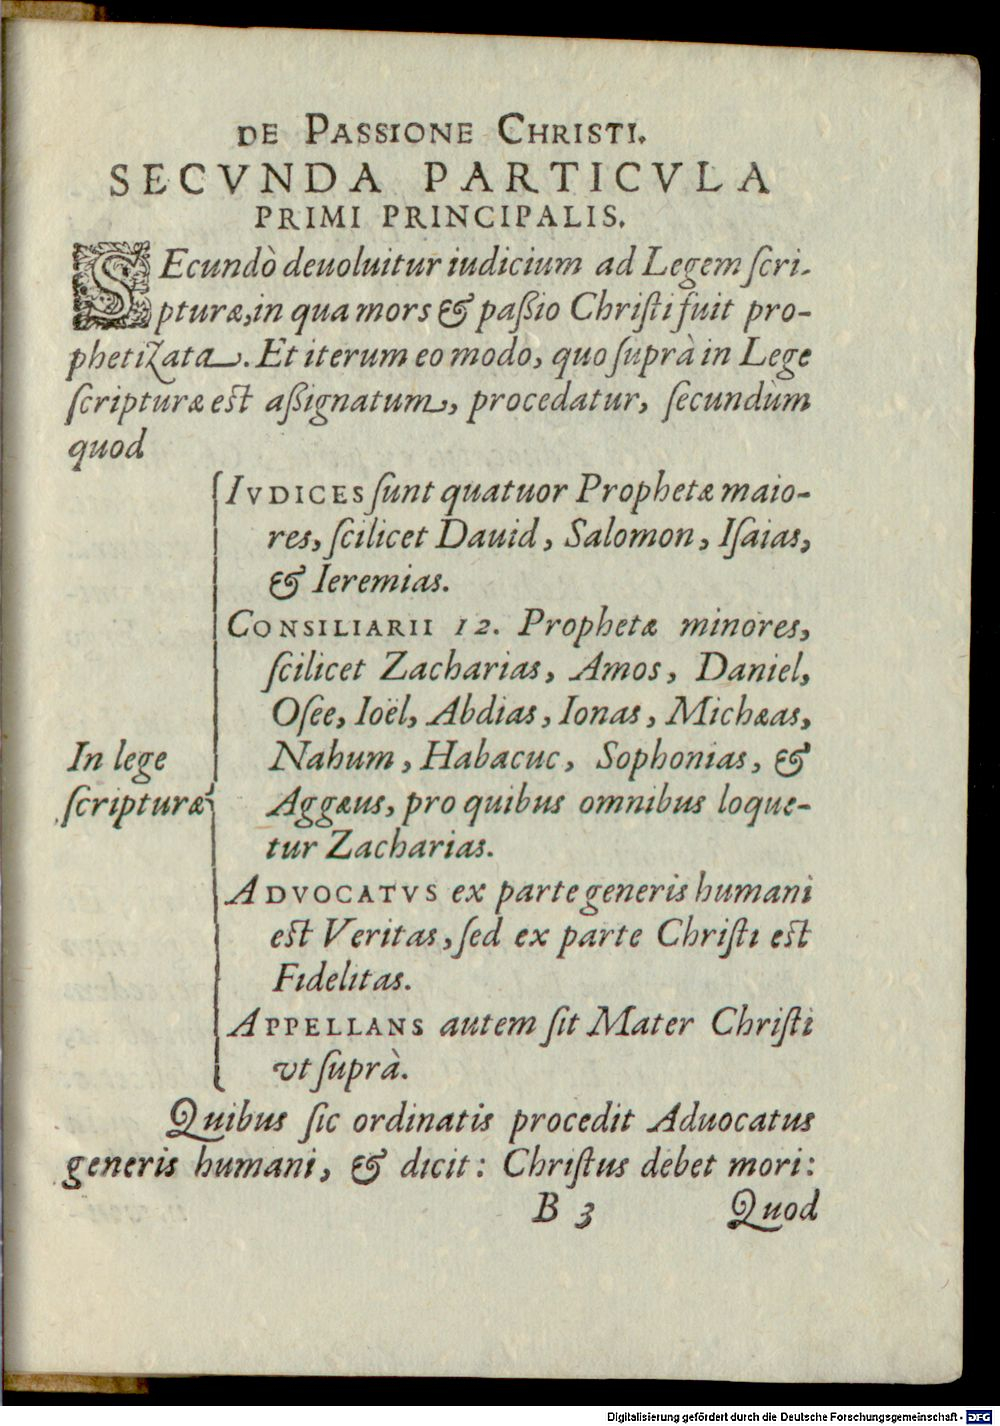 DE PASSIONE CHRISTI.
SECVNDA PARTICVLA
PRIMI PRINCIPALIS.
SEcundò deuoluitur iudicium ad Legem ſcri-
pturæ, in qua mors & paßio Chriſti fuit pro-
phetizata. Et iterum eo modo, quo ſuprà in Lege
ſcripturæ eſt aßignatum, procedatur, ſecundùm
quod
IVDICES ſunt quatuor Prophetæ maio-
res, ſcilicet Dauid, Salomon, Iſaias,
& Ieremias.
CONSILIARII 12. Prophetæ minores,
ſcilicet Zacharias, Amos, Daniel,
Oſee, Ioël, Abdias, Ionas, Michæas,
In lege
ſcripturæ
Nahum, Habacuc, Sophonias, &
Aggæus, pro quibus omnibus loque-
tur Zacharias.
ADVOCATVS ex parte generis humani
eſt Veritas, ſed ex parte Chriſti eſt
Fidelitas.
APPELLANS autem ſit Mater Chriſti
vt ſuprà.
Quibus ſic ordinatis procedit Aduocatus
generis humani, & dicit: Chriſtus debet mori:
B 3 Quod
Digitalisierung gefördert durch die Deutsche Forschungsgemeinschaft - DFG